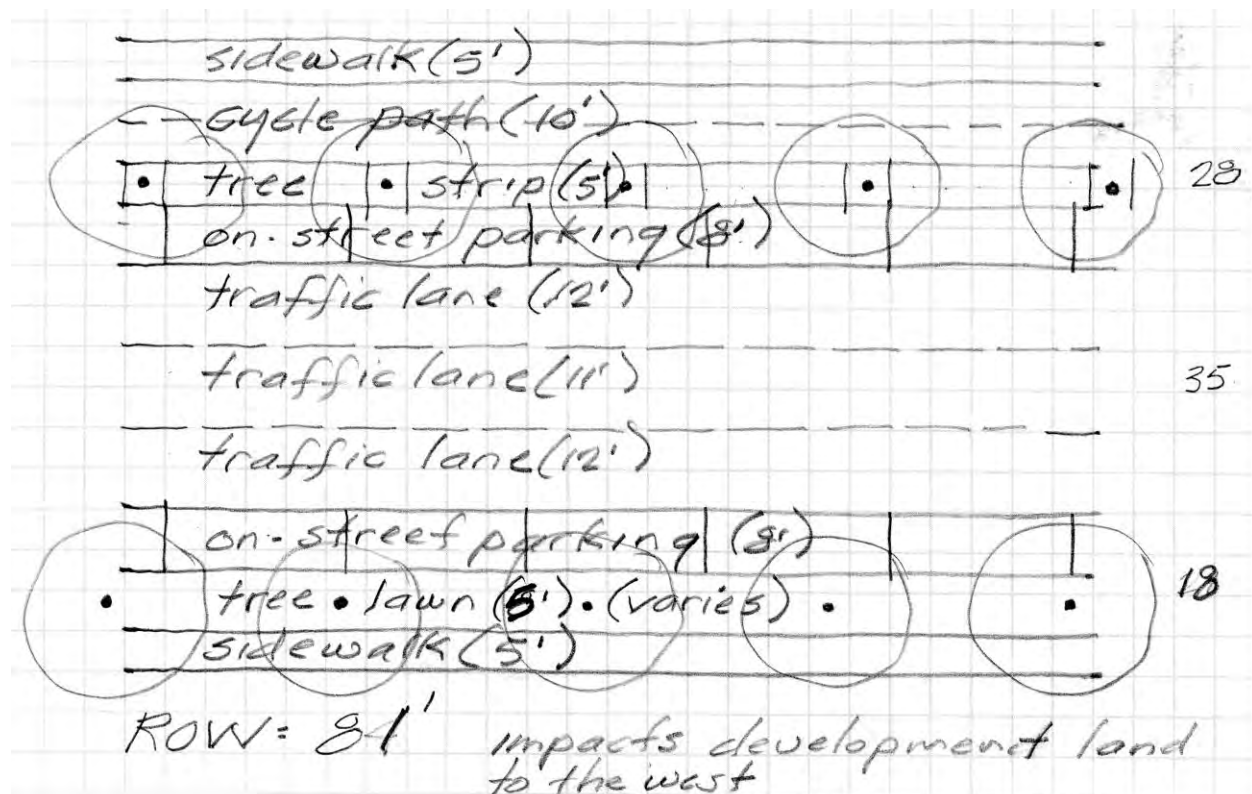 sidewalk (5')
cycle path (10')
tree strip (5')
28
on-street parking (8')
traffic lane (12')
traffic lane (11')
35
traffic lane (12')
on-street parking (8')
tree lawn (5') (varies)
18
sidewalk (5')
ROW = 81'
impacts development land
to the west